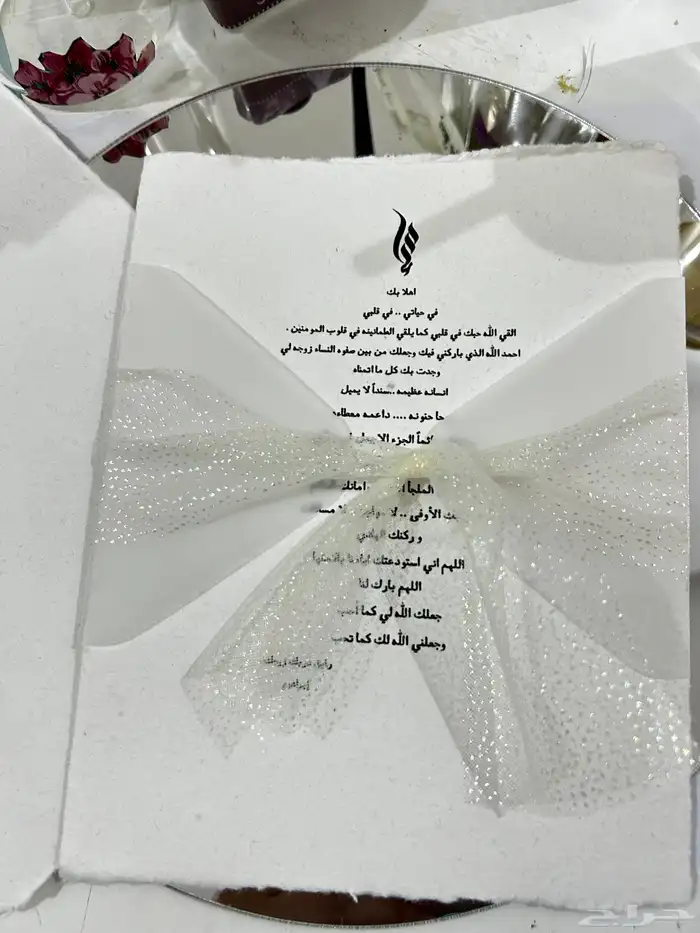 اهلا بك
في حياتي .. في قلبي
القي الله حبك في قلبي كما يلقي الطمانينه في قلوب المومنين .
احمد الله الذي باركني فيك وجعلك من بين صفوه النساء زوجه لي
وجدت بك كل ما اتمناه
انسانه عظيمه ..سنداً لا يميل
حنونه .... داعمه معطاءه
الجزء
الملجأ امانك
الأوفى .. لا
و ركنك
اللهم اني استودعتك
اللهم بارك لنا
جعلك الله لي كما أحب
وجعلني الله لك كما تحب
زوجك
حراج